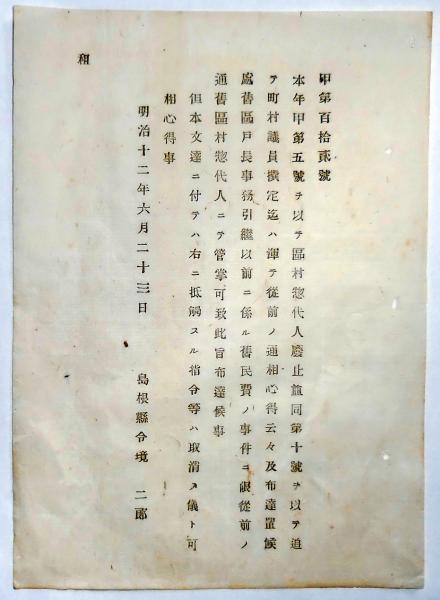 甲第百拾貳號
本年甲第五號ヲ以テ區村惣代人廢止並同第十號ヲ以テ追
テ町村議員撰定迄ハ渾テ從前ノ通相心得云々及布達置候
處舊區戸長事務引繼以前ニ係ル舊民費ノ事件ニ限從前ノ
通舊區村惣代人ニテ管掌可致此旨布達候事
但本文達ニ付テハ右ニ抵觸スル指令等ハ取消ス儀ト可
相心得事
明治十二年六月二十三日
島根縣令境 二郎
租